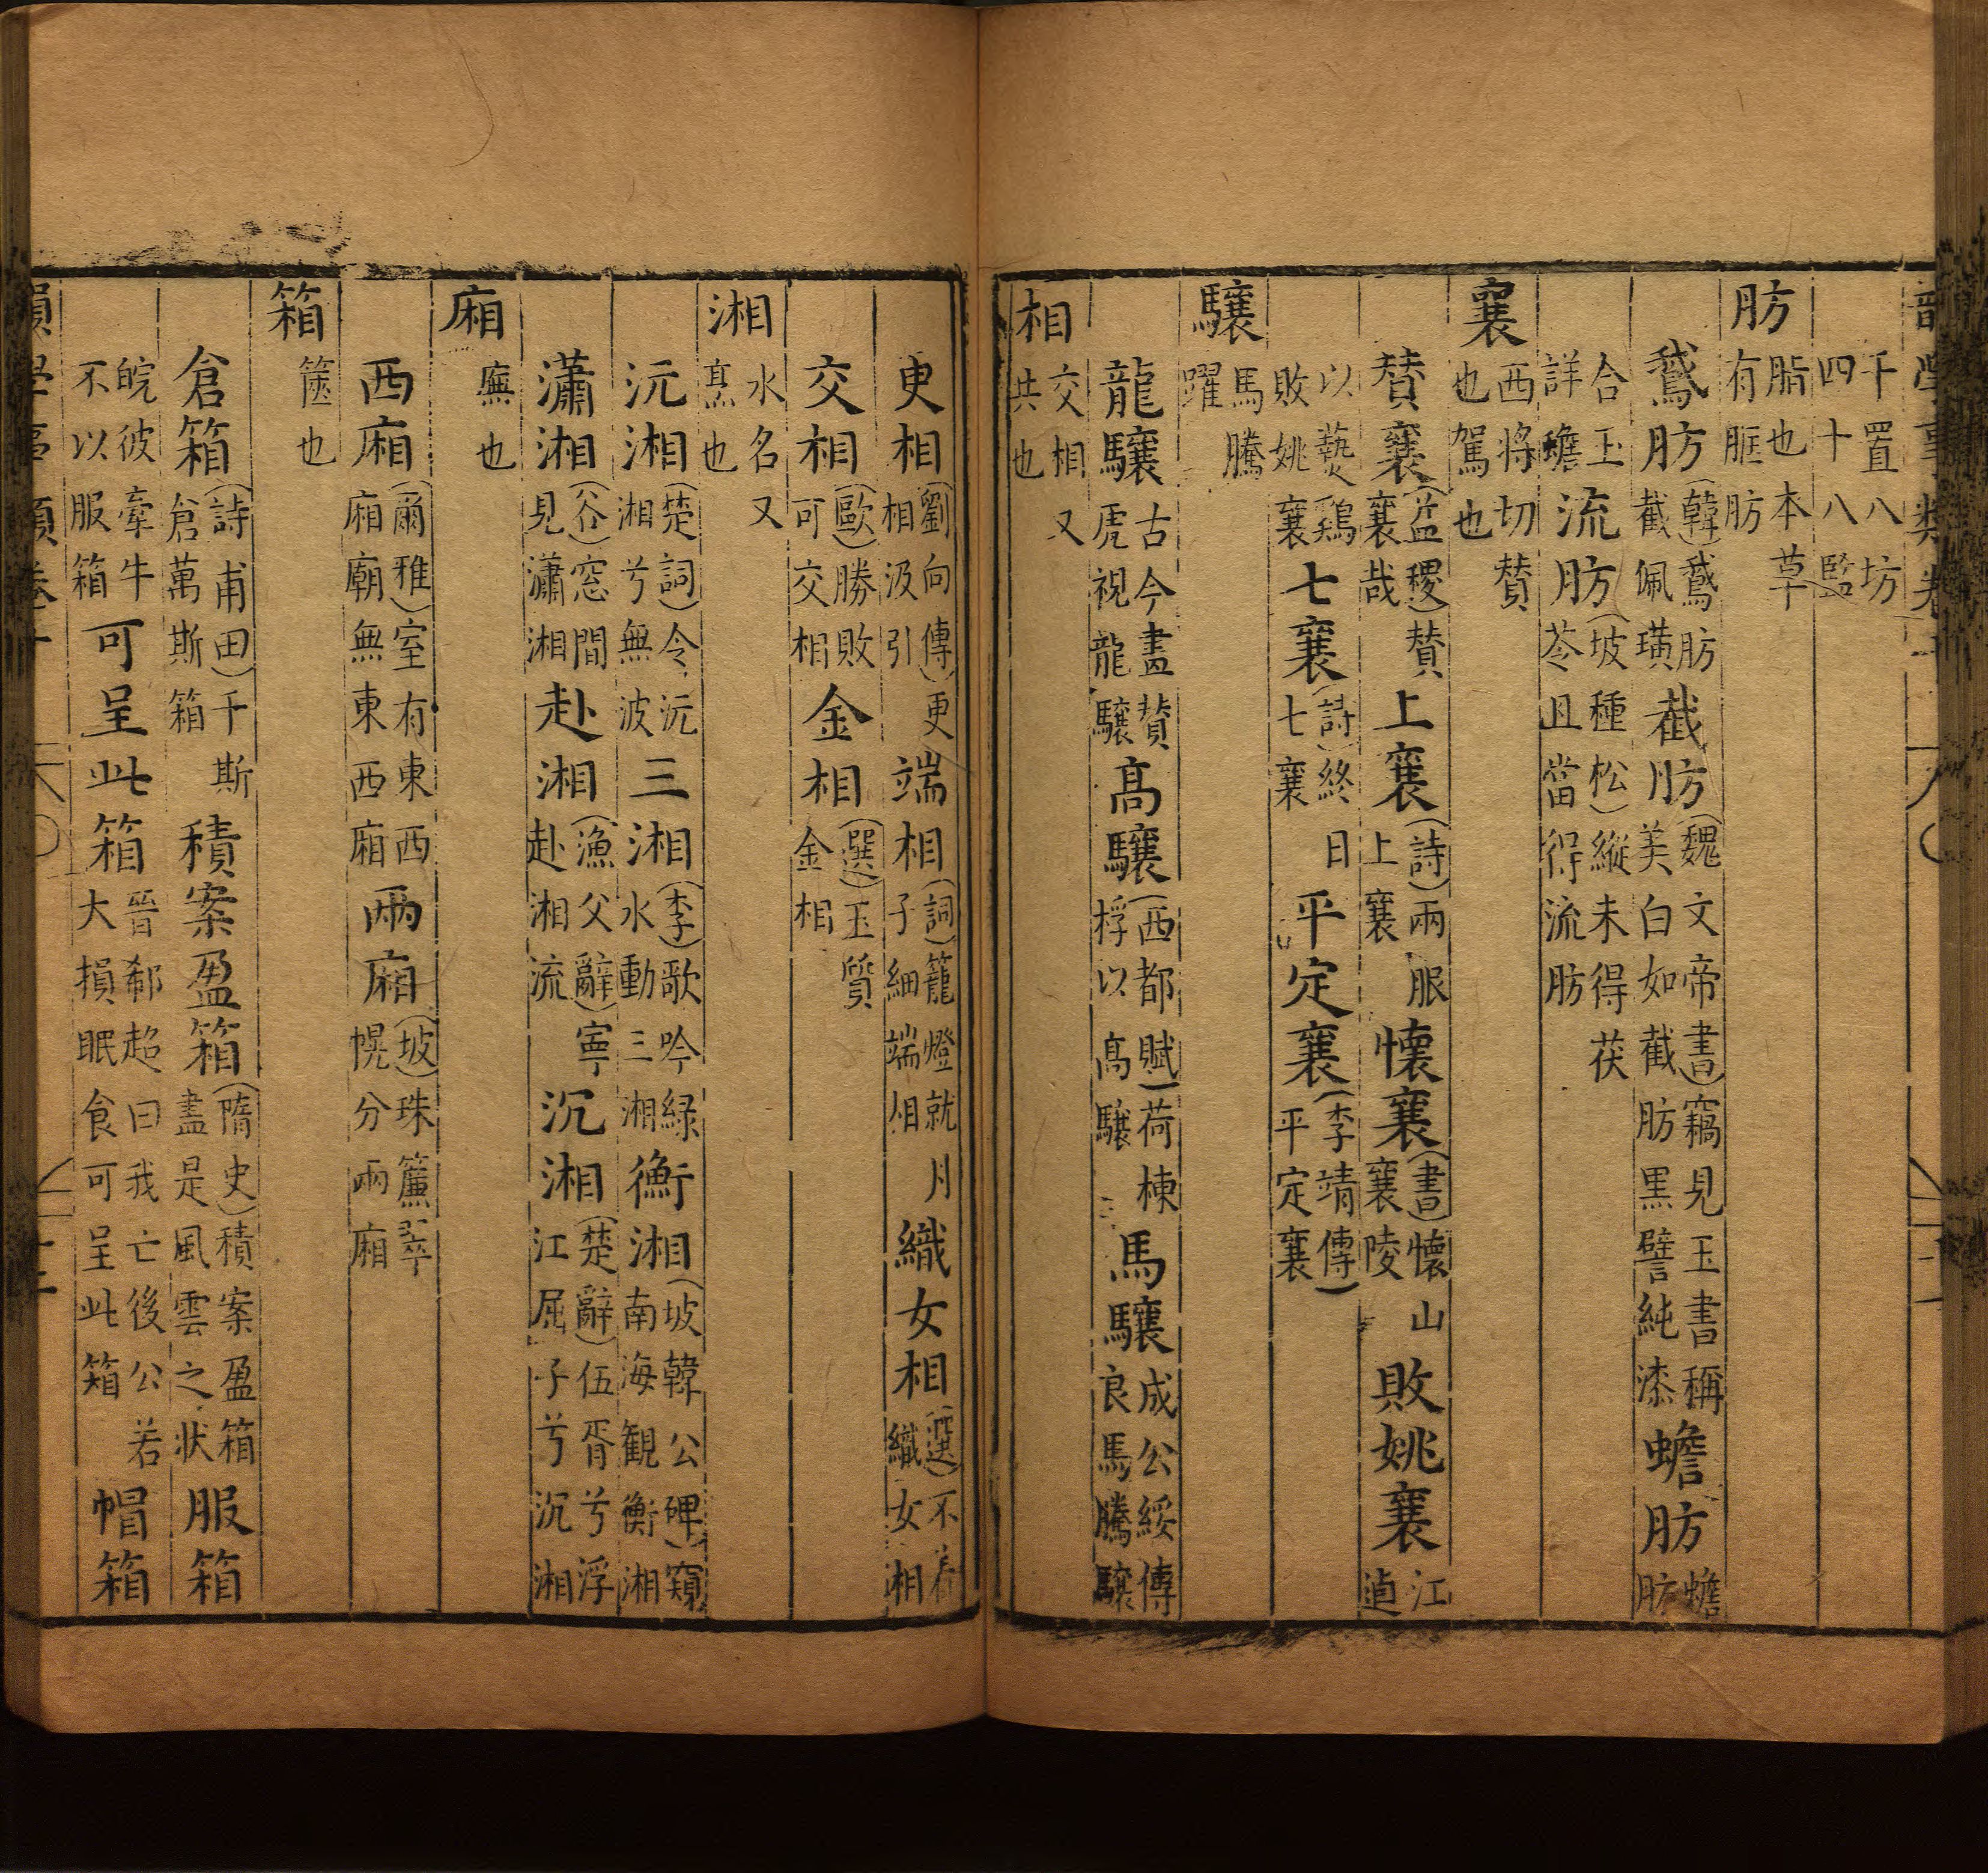 千置八坊
四十八監
肪 脂也本草
有䐃肪
鵞肪(韓)鵞肪
截佩璜 截肪(魏文帝書)竊見玉書稱
美白如截肪黒譬純漆 蟾肪 蟾
肪
合玉
詳蟾 流肪(坡種松)縱未得茯
苓且當得流肪
襄 西將切賛
也駕也
賛襄(益稷)賛
襄哉 上襄(詩)兩服
上襄 懷襄(書)懷山
襄陵 敗姚襄 江
逌
以爇鷄
敗姚襄 七襄(詩)終日
七襄 平定襄(李靖傳)
平定襄
驤 馬騰
躍
龍驤 古今畫賛
虎視龍驤 髙驤(西都賦)荷棟
桴以髙驤 馬驤 成公綏傳
良馬騰驤
相 交相又
共也
更相(劉向傳)更
相汲引 端相(詞)籠燈就月
子細端相 織女相(選)不
織女相
交相(歐)勝敗
可交相 金相(選)玉質
金相
湘 水名又
烹也
沅湘(楚詞)令沅
湘兮無波 三湘(李)歌吟緑
水動三湘 衡湘(坡韓公碑)窺
南海觀衡湘
瀟湘 窓間
見瀟湘 赴湘(漁父辭)寧
赴湘流 沉湘(楚辭)伍胥兮浮
江屈子兮沉湘
廂 廡也
西廂(爾雅)室有東西
廂廟無東西廂 兩廂(坡)珠簾翠
幌分兩廂
箱 篋也
倉箱(詩甫田)千斯
倉萬斯箱 積案盈箱(隋史)積案盈箱
盡是風雲之状 服箱
皖彼牽牛
不以服箱 可呈此箱 晉郗超曰我亡後公若
大損眠食可呈此箱 帽箱